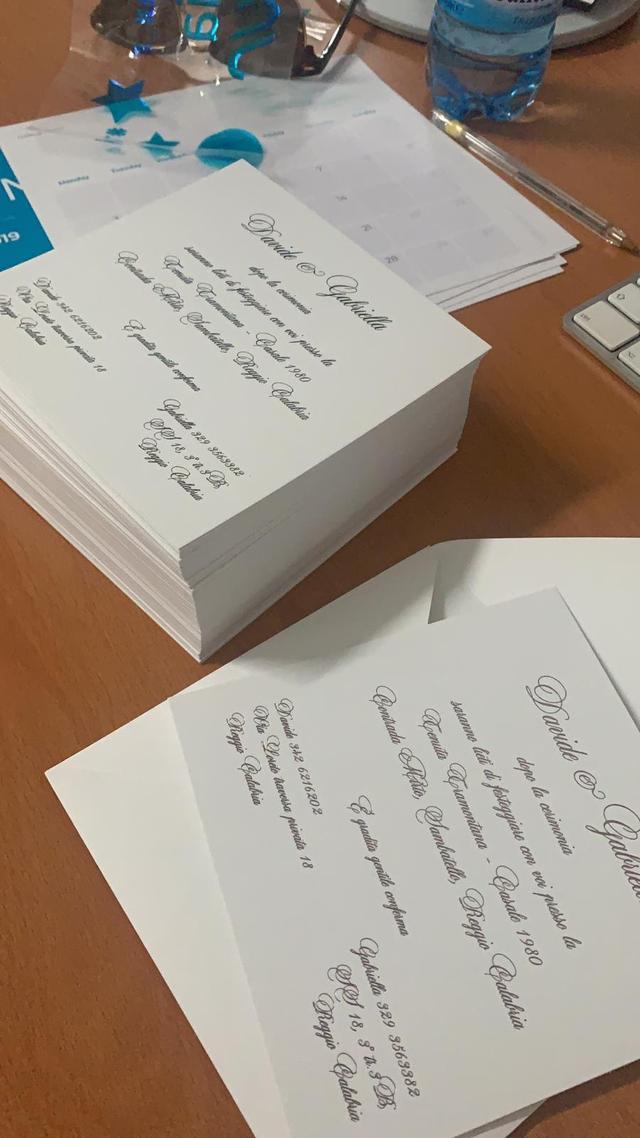 Davide & Gabriella
dopo la cerimonia
saranno lieti di festeggiare con voi presso la
Tenuta Tramontana - Casale 1980
Contrada Militò, Sambatello, Reggio Calabria
È gradita gentile conferma
Davide 342 6216202
Via Lordo traversa privata 18
Reggio Calabria
Gabriella 329 3563382
SS 18, 3° tr. 3B,
Reggio Calabria
Davide & Gabriella
dopo la cerimonia
saranno lieti di festeggiare con voi presso la
Tenuta Tramontana - Casale 1980
Contrada Reggio Calabria
È gradita gentile conferma
Davide 342 6216202
traversa privata 18
Reggio Calabria
Gabriella 329 3563382
SS 18, 3° tr. 3B,
Reggio Calabria
Monday Tuesday
7
14
21
28